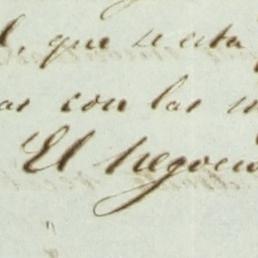 l, que se esta
as con las
El negocia